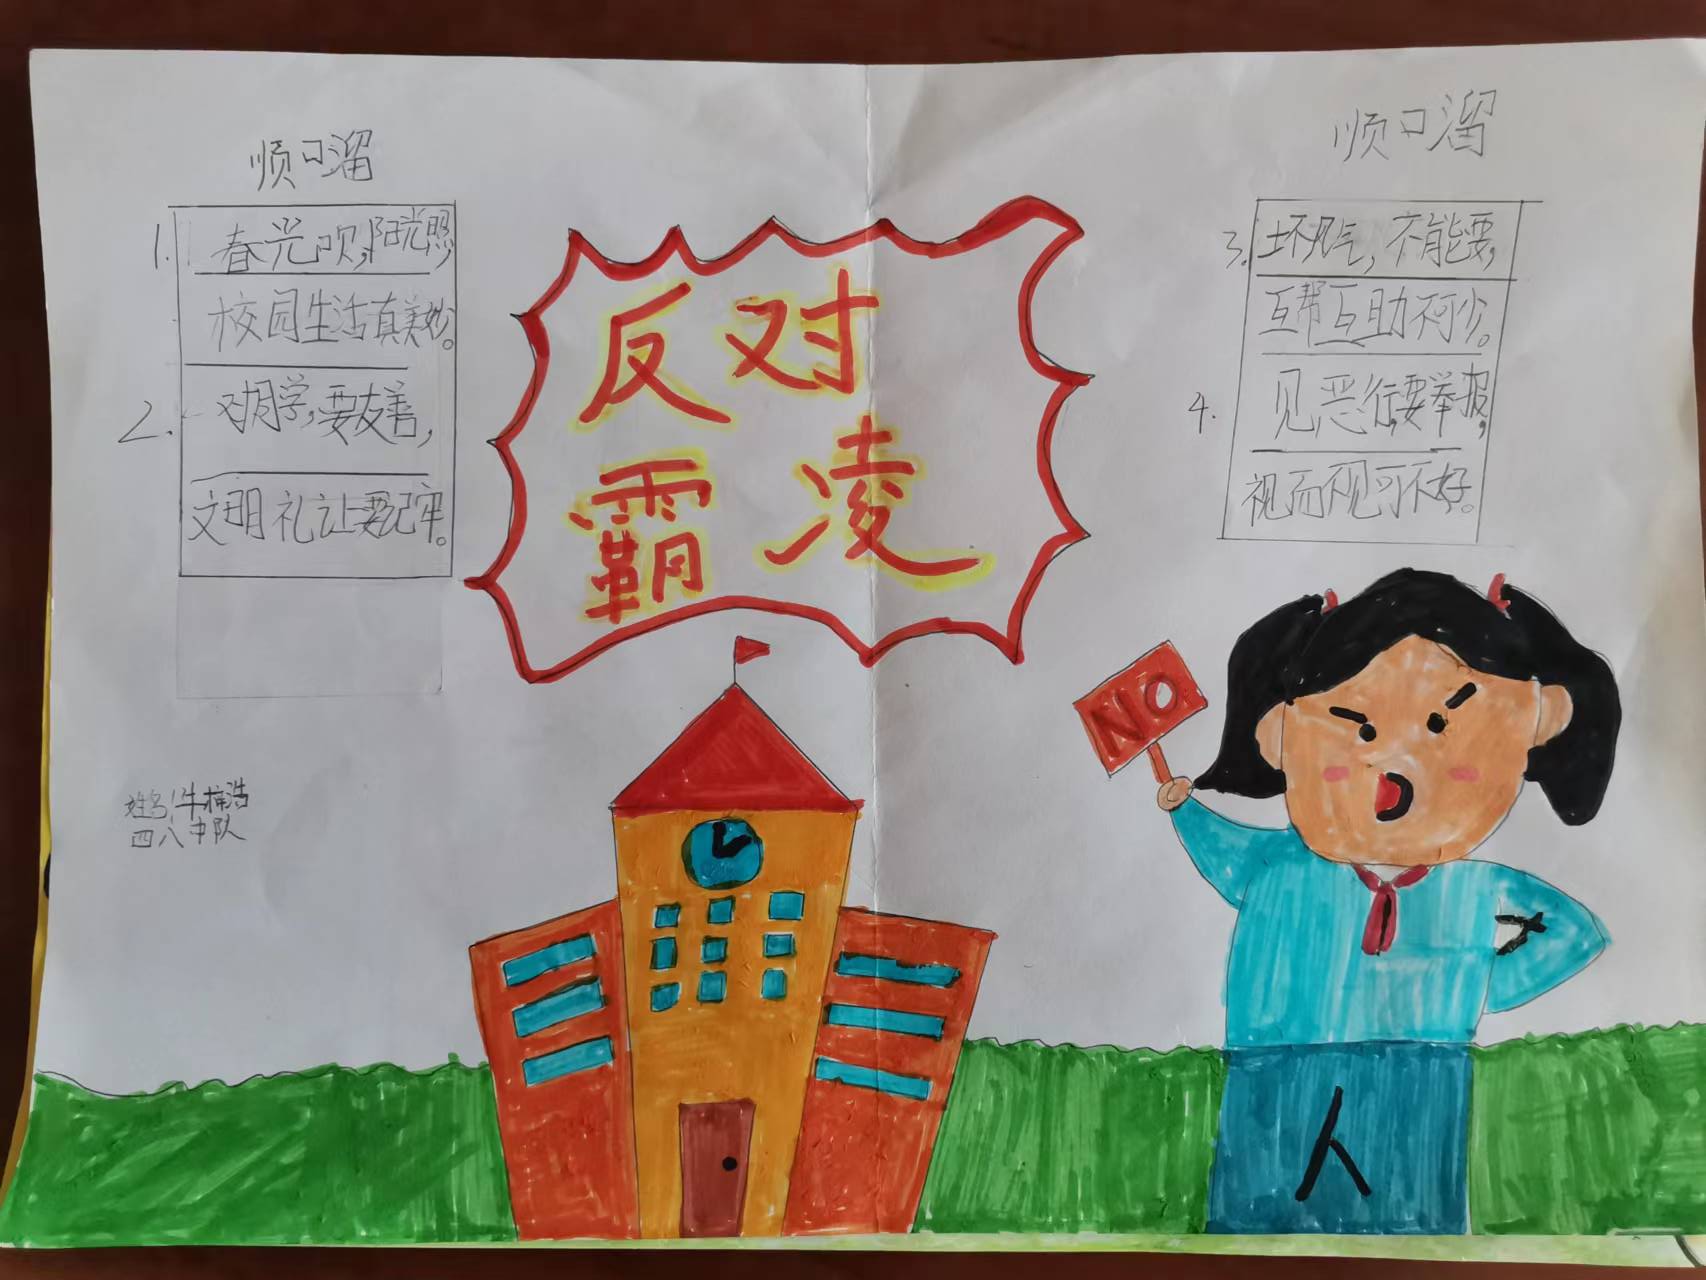 顺口溜
1. 春光吹,阳光照,
校园生活真美妙。
2. 对同学,要友善,
文明礼让要记牢。
反对
霸凌
顺口溜
3. 坏风气,不能要,
互帮互助不可少。
4. 见恶行,要举报,
视而不见可不好。
NO
姓名:牛梓浩
四八中队